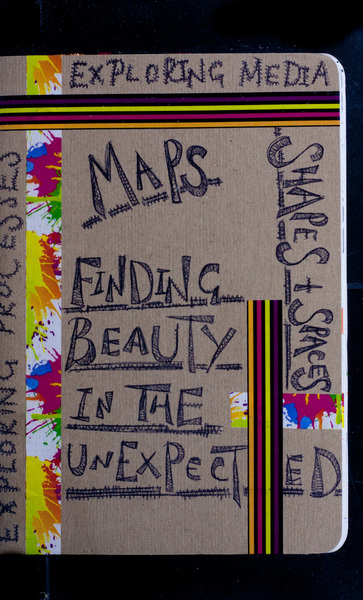 EXPLORING MEDIA
MAPS
SHAPES + SPACES
FINDING
BEAUTY
IN THE
UNEXPECTED
EXPLORING PROCESSES